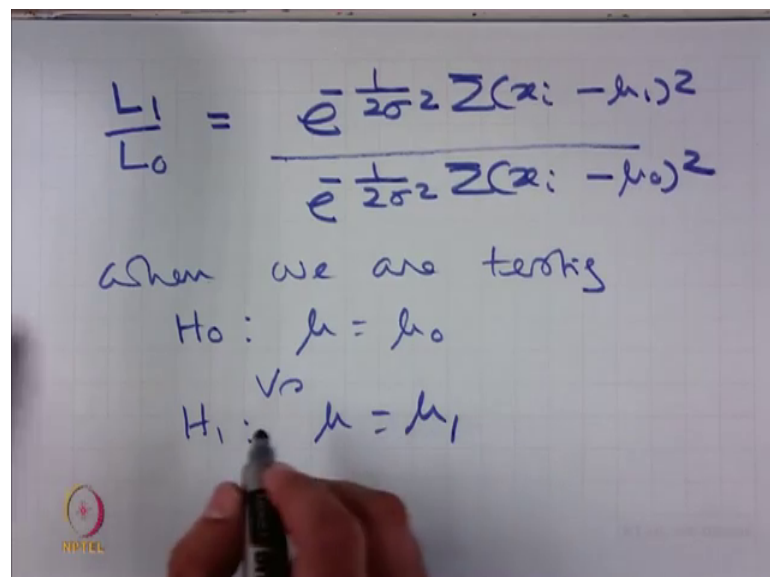 L₁/L₀ = e^(-1/(2σ²) Σ(xᵢ - μ₁)²) / e^(-1/(2σ²) Σ(xᵢ - μ₀)²)
when we are testing
H₀ : μ = μ₀
Vs
H₁ : μ = μ₁
NPTEL